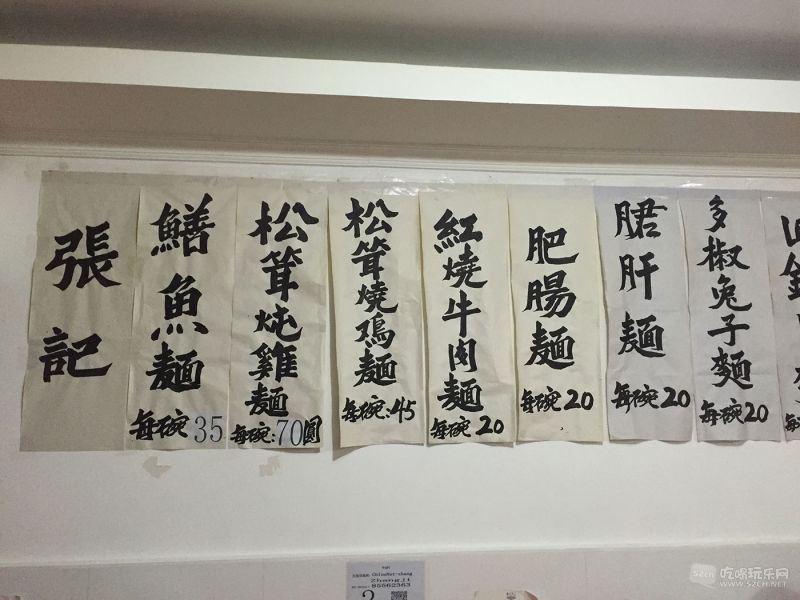 張記
鱔魚麵
每碗35
松茸炖雞麵
每碗:70圓
松茸燒鸡麵
每碗:45
紅燒牛肉麵
每碗20
肥腸麵
每碗20
䐃肝麵
每碗20
多椒兔子麵
每碗20
Zhangji
65562363
2
吃喝玩乐网
WWW.52CH.NET